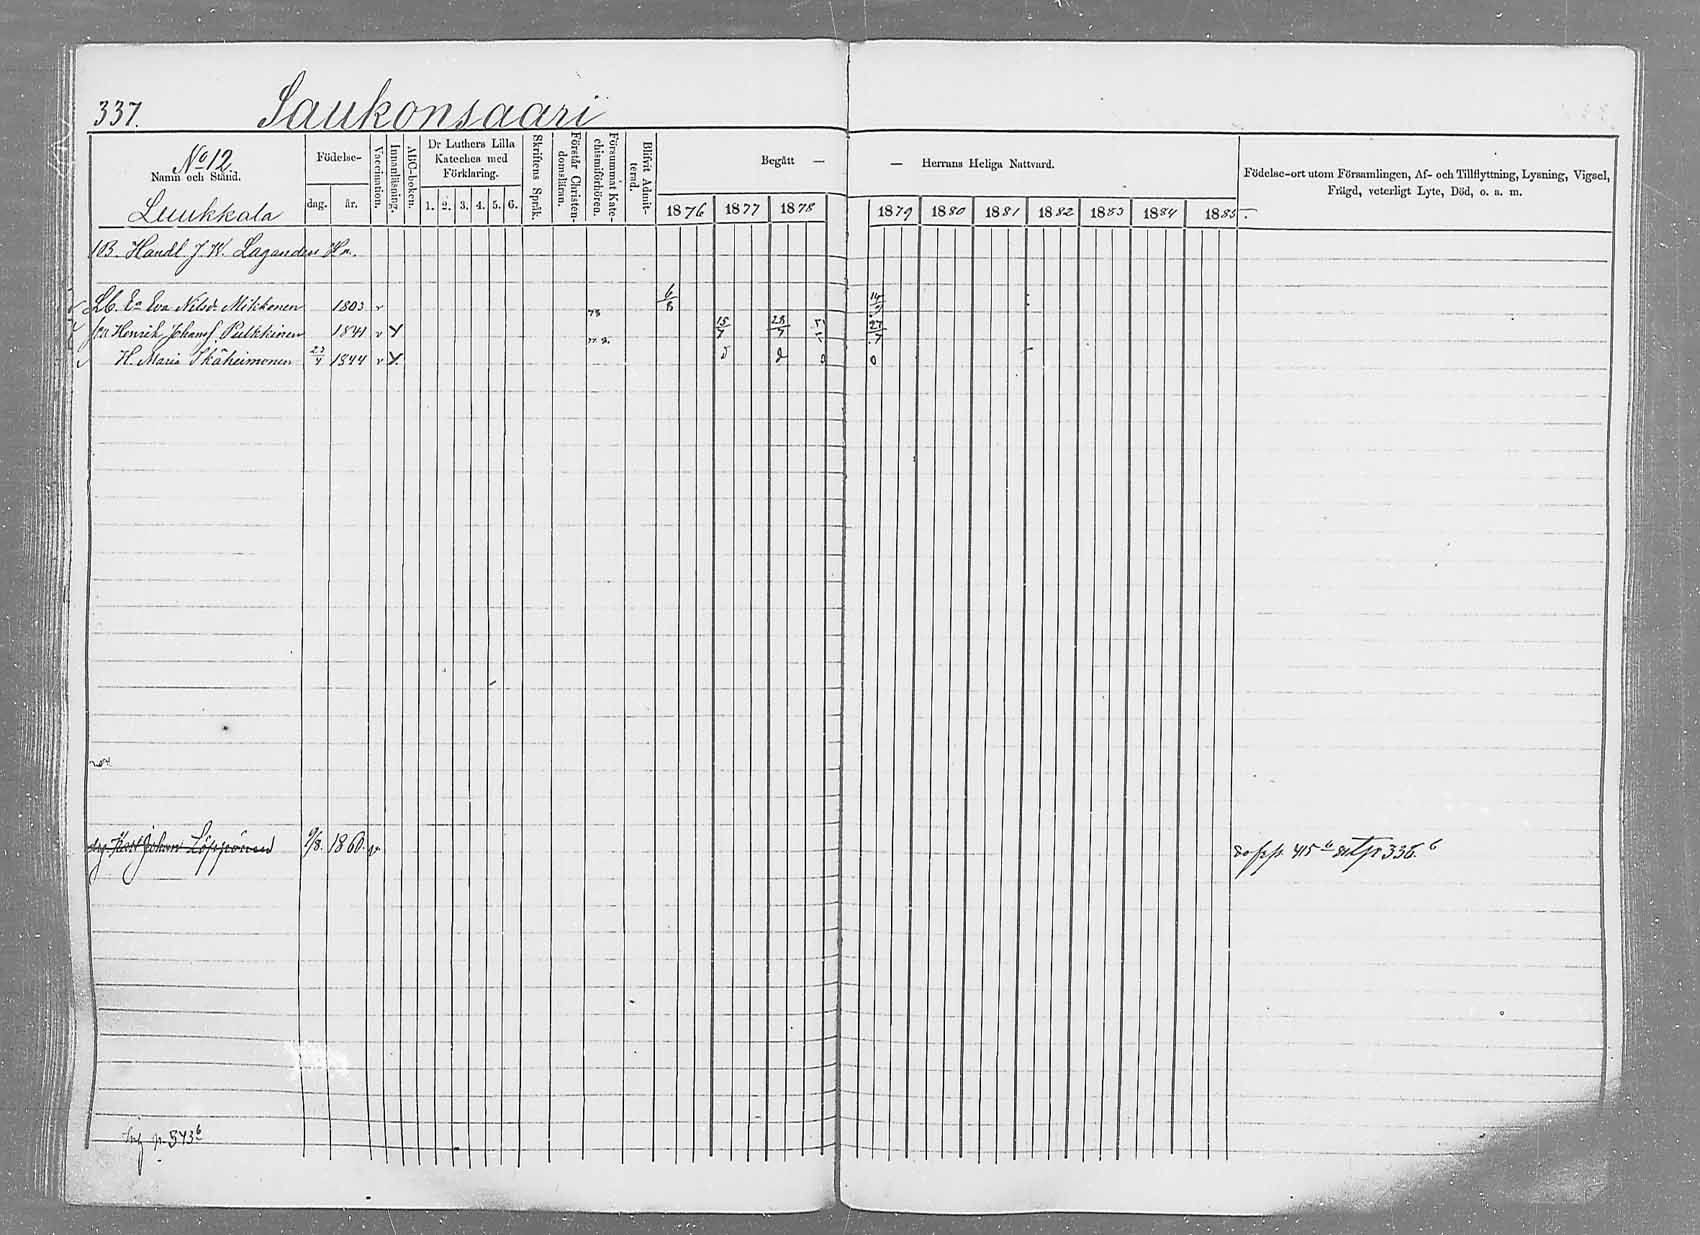 337. Saukonsaari
No 12.
Namn och Stånd.
Födelse-
dag. år.
Vaccination.
Innanläsning.
ABC-boken.
Dr Luthers Lilla
Kateches med
Förklaring.
1. 2. 3. 4. 5. 6.
Skriftens Språk.
Förstår Christen-
domsläran.
Försummat Kate-
chismiförhören.
Blifvit Admit-
terad.
Begått —
— Herrans Heliga Nattvard.
1876 1877 1878 1879 1880 1881 1882 1883 1884 1885
Födelse-ort utom Församlingen, Af- och Tillflyttning, Lysning, Vigsel,
Frägd, veterligt Lyte, Död, o. a. m.
Luukkala
103. Handl J. W. Lagander
Eva Nilsd. Mikkonen 1803 v 6/8
Henrik Johansf Pulkkinen 1841 v 15/7 28/7 27/7
H. Maria Ikäheimonen 23/4 1844 v
Johan Löppönen 9/8. 1860.
415 336.
543